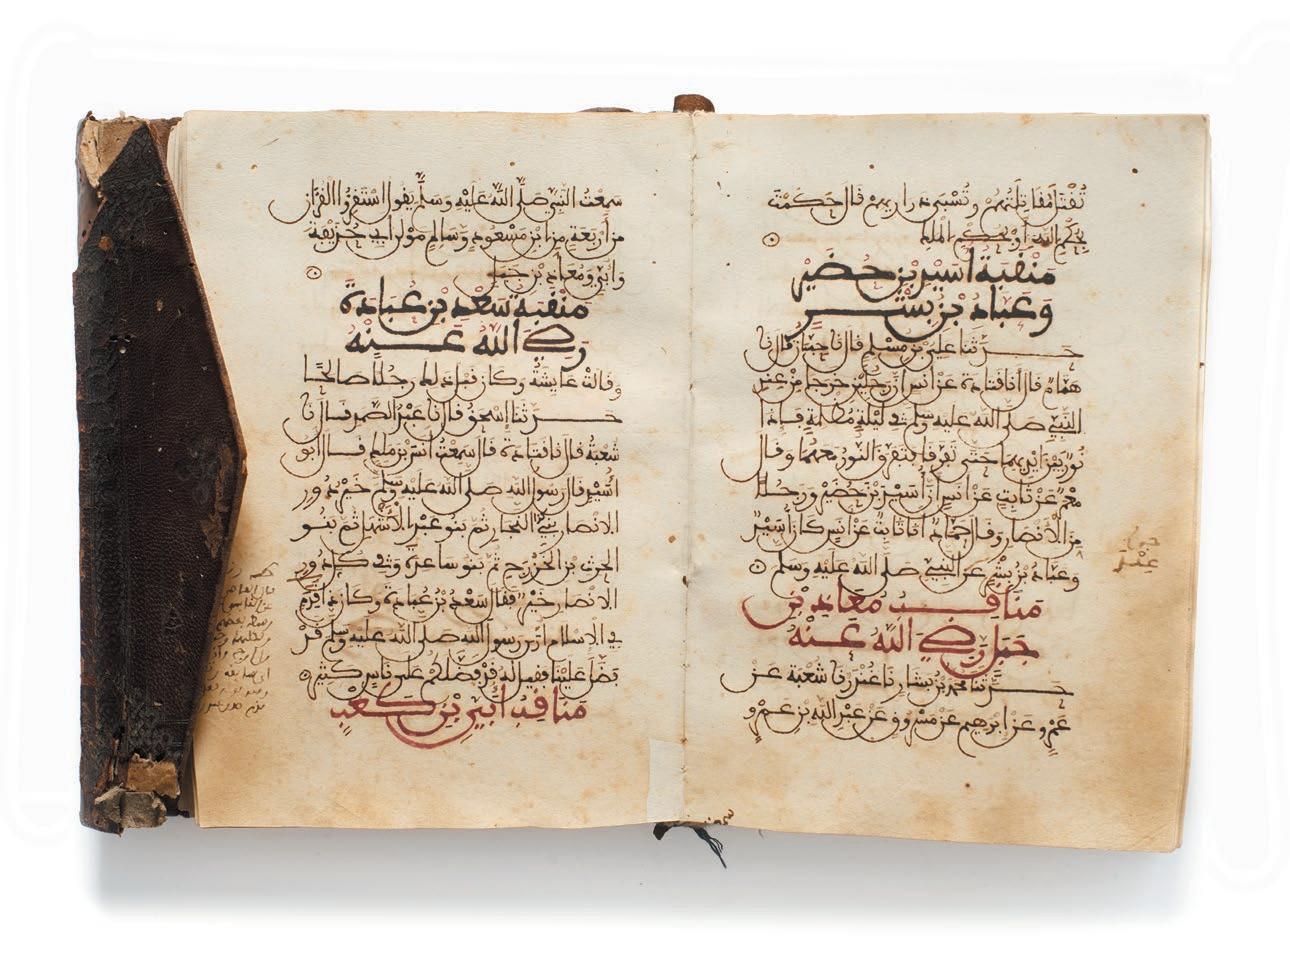 تُقْتَلُ مُقَاتِلَتُهُمْ وَتُسْبَى ذراريهم قال حَكَمْتَ
بِحُكْمِ اللّهِ أو بحُكْمِ الملك
مَنْقَبَة أُسَيْدِ بْنِ حُضَيْرٍ
وَعَبَّاد بْن بِشْرٍ
حدثنا علي بن مسلم قال نا حَبَّان قال نا
هَمَّامٌ قال أنا قتادة عن أنس أن رجلين خرجا من عند
النَّبِيِّ صلى الله عليه وسلم في ليلة مُظلمة فإذا
نُورٌ بين أيديهما حتى تفرقا فتفرق النُّور معهما وقال
مَعْمَرٌ عن ثابت عن أنس أن أسيد بن حُضَيْر ورجلا
من الأنصار وقال حمَّاد أنا ثابت عن أنس كان أسيد
وعباد بن بشر عند النبي صلى الله عليه وسلم
مَنَاقِبُ مُعَاذ بْن
جَبَل رَضِيَ اللّه عَنْهُ
حدثنا محمد بن بشار نا غُنْدَر نا شعبة عن
عَمْرٍو عن إبرهيم عن مسروق عن عبد الله بن عَمْرٍو
سَمِعْتُ النَّبِيَّ صَلَّى اللهُ عَلَيْهِ وَسَلَّمَ يقول اسْتَقْرِءُوا القرآن
من أربعة من ابن مسعود وسالم مولى أبي حذيفة
وأبي ومعاذ بن جبل
مَنْقَبَة سَعْدِ بْنِ عُبَادَةَ
رَضِيَ اللّه عَنْهُ
وقالت عايشة وكان قبل ذلك رجلا صالحا
حدثنا إسحق قال نا عبد الصمد قال نا
شعبة قال نا قتادة قال سمعت أنس بن ملك قال أبو
أُسَيْد قال رسول الله صلى الله عليه وسلم خير دُور
الأنصار بني النجار ثم بنو عبد الأشهل ثم بنو
الحرث بن الخزرج ثم بنو ساعدة وفي كل دور
الأنصار خَيْرٌ فقال سعد بن عبادة وكان ذا قِدَمٍ
في الإسلام أرى رسول الله صلى الله عليه وسلم قد
فضل علينا فقيل له قد فضلكم على ناس كثير
مَنَاقِبُ أُبَيِّ بْنِ كَعْبٍ